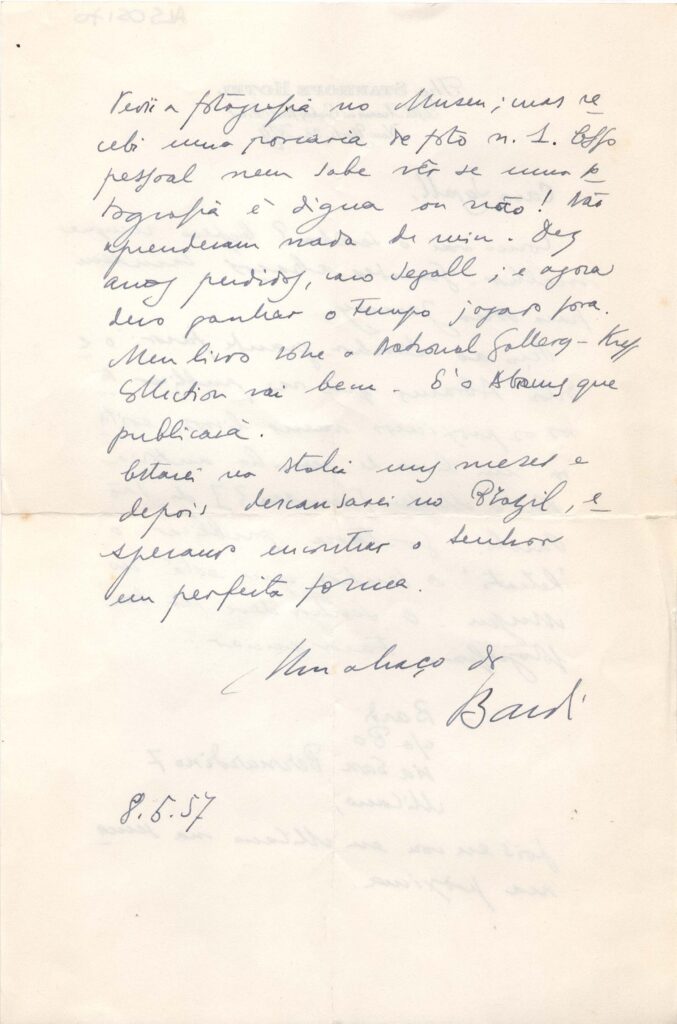 Pedi a fotografia no Museu; mas re-
cebi uma porcaria de foto n. 1. Esse
pessoal nem sabe vêr se uma fo-
tografia é digna ou não! Não
aprenderam nada de mim. Dez
anos perdidos, caro Segall; e agora
devo ganhar o tempo jogado fora.
Meu livro sobre a National Gallery - Kress
Collection vai bem. É o Abrams que
publicará.
Estarei na Italia uns meses e
depois descansarei no Brazil, e-
sperando encontrar o senhor
em perfeita forma.
Um abraço do
Bardi
8.5.57